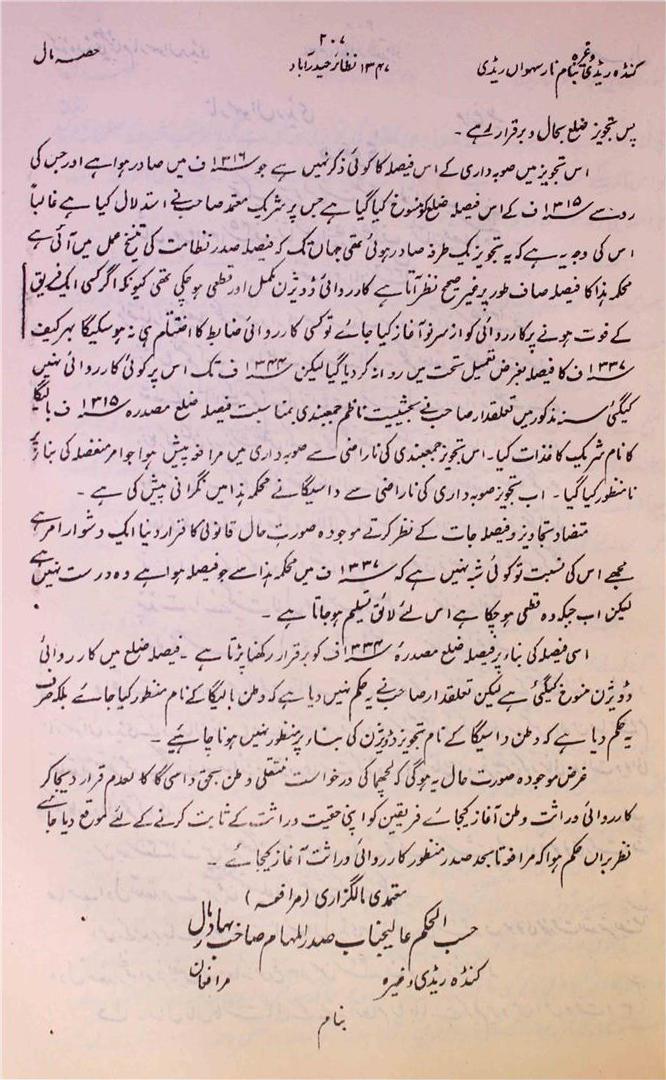 ۲۰۷
کنڈہ ریڈی وغیرہ بنام نارسہواں ریڈی
۱۳۴۷ نظائر حیدرآباد
حصہ مال
پس تجویز ضلع بحال و برقرار ہے ۔
اس تجویز میں صوبہ داری کے اس فیصلہ کا کوئی ذکر نہیں ہے جو ۱۳۱۶ ف میں صادر ہوا ہے اور جس کی
رو سے ۱۳۱۵ ف کے اس فیصلہ ضلع کو منسوخ کیا گیا ہے جس پر شریک معتمد صاحب نے استدلال کیا ہے غالباً
اس کی وجہ یہ ہے کہ یہ تجویز یک طرفہ صادر ہوئی تھی جہاں تک کہ فیصلہ صدر نظامت کی تنسیخ عمل میں آئی ہے
محکمہ ہذا کا فیصلہ صاف طور پر غیر صحیح نظر آتا ہے کارروائی ڈویژن مکمل اور قطعی ہو چکی تھی کیونکہ اگر کسی ایک فریق
کے فوت ہونے پر کارروائی کو از سر نو آغاز کیا جائے تو کسی کارروائی ضابط کا اختتام ہی نہ ہو سکیگا بہر کیف
۱۳۳۷ ف کا فیصلہ بغرض تعمیل تحت میں روانہ کر دیا گیا لیکن ۱۳۴۴ ف تک اس پر کوئی کارروائی نہیں
کیگئی سنہ مذکور میں تعلقدار صاحب نے بحیثیت ناظم جمعبندی بمناسبت فیصلہ ضلع مصدرہ ۱۳۱۵ ف بالیگا
کا نام شریک کاغذات کیا۔ اس تجویز جمعبندی کی ناراضی سے صوبہ داری میں مرافعہ پیش ہوا جو امر منفصلہ کی بناء پر
نامنظور کیا گیا ۔ اب تجویز صوبہ داری کی ناراضی سے داسیگا نے محکمہ ہذا میں نگرانی پیش کی ہے ۔
متضاد تجاویز و فیصلہ جات کے نظر کرتے موجودہ صورت حال قانونی کا قرار دینا ایک دشوار امر ہے
مجھے اس کی نسبت تو کوئی شبہ نہیں ہے کہ ۱۳۳۷ ف میں محکمہ ہذا سے جو فیصلہ ہوا ہے وہ درست نہیں ہے
لیکن اب جبکہ وہ قطعی ہو چکا ہے اس لئے لائق تسلیم ہو جاتا ہے ۔
اسی فیصلہ کی بناء پر فیصلہ ضلع مصدرہ ۱۳۳۴ ف کو برقرار رکھنا پڑتا ہے ۔ فیصلہ ضلع میں کارروائی
ڈویژن منسوخ کیگئی ہے لیکن تعلقدار صاحب نے یہ حکم نہیں دیا ہے کہ وطن بالیگا کے نام منظور کیا جائے بلکہ صرف
یہ حکم دیا ہے کہ وطن داسیگا کے نام تجویز ڈویژن کی بناء پر منظور نہیں ہونا چاہیے ۔
غرض موجودہ صورت حال یہ ہوگی کہ لچھما کی درخواست منتقلی وطن بحق داسی گا کالعدم قرار دیجاکر
کارروائی وراثت وطن آغاز کیجائے فریقین کو اپنی حقیت وراثت کے ثابت کرنے کے لئے موقع دیا جائے
نظر براں حکم ہوا کہ مرافعہ تا بحد صدر منظور کارروائی وراثت آغاز کیجائے ۔
معتمدی مالگزاری (مرافعہ)
حسب الحکم عالیجناب صدر المہام صاحب بہادر مال
کنڈہ ریڈی وغیرہ
مرافعان
بنام